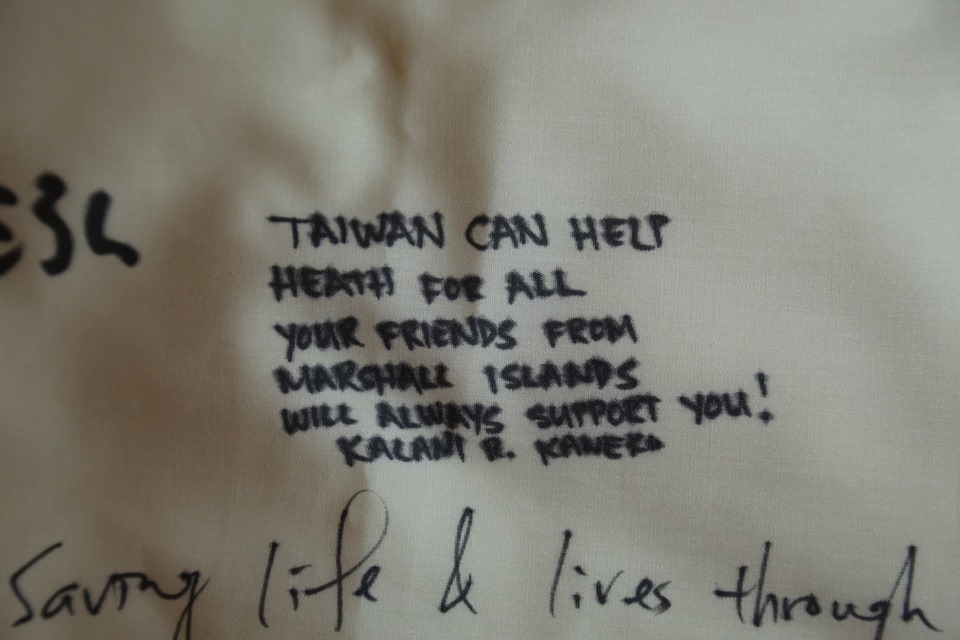 TAIWAN CAN HELP
HEATH FOR ALL
YOUR FRIENDS FROM
MARSHALL ISLANDS
WILL ALWAYS SUPPORT YOU!
KALANI R. KANEKO
Saving life & lives through